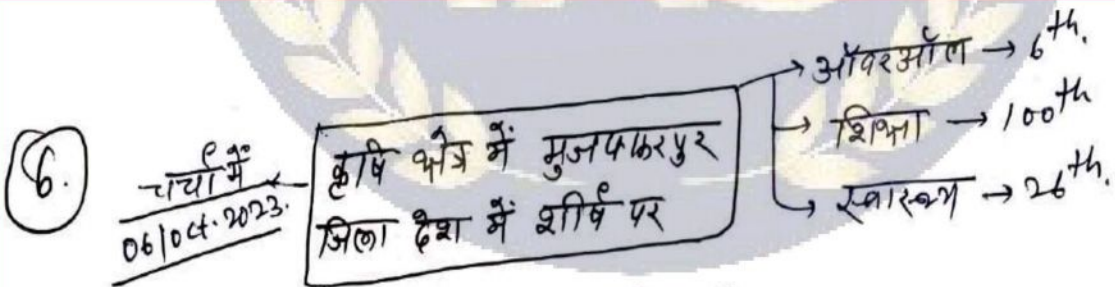 6.
चर्चा में
06/Oct.2023.
कृषि क्षेत्र में मुजफ्फरपुर
जिला देश में शीर्ष पर
→ ऑवरऑल → 6th.
→ शिक्षा → 100th
→ स्वास्थ्य → 26th.